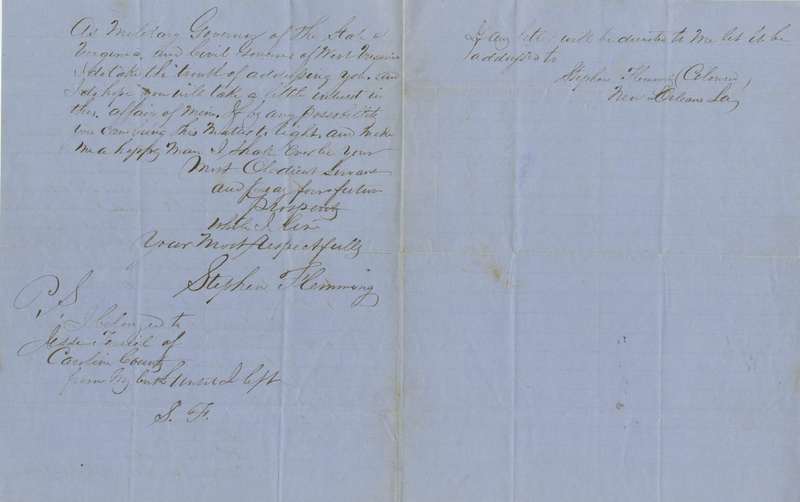 As Military Governor of the State of
Virginia, and Civil Governor of West Virginia
I do take the trouble of addressing you, and
I do hope you will take a little interest in
this affair of mine. If by any possibility
you can bring this Matter to light, and make
me a happy Man, I shall Ever be Your
Most Obedient Servant
and pray for your future
Prosperity
while I live
Your Most Respectfully
Stephen Flemming
P.S
I belonged to
Jesse of
Caroline County
from My birth until I left
S. F.
If any letter will be directed to Me let it be
addressed to
Stephen Flemming (Colored)
New Orleans La